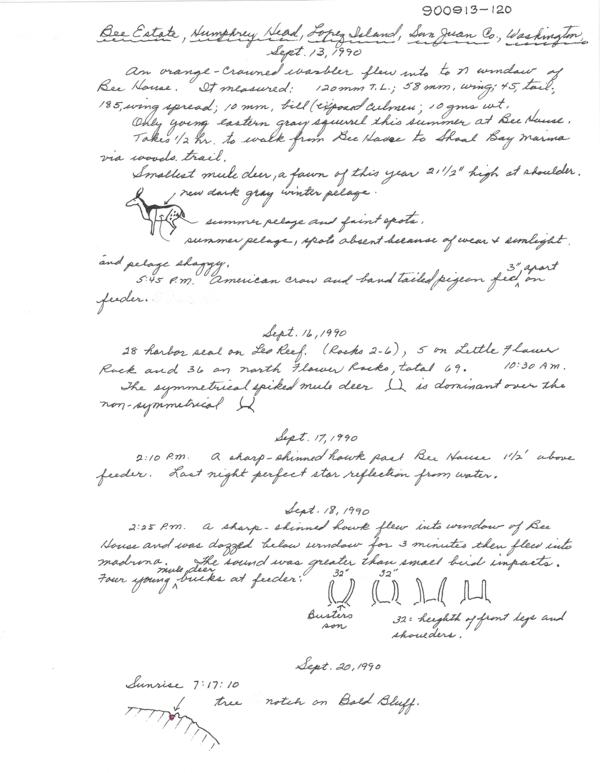 900913-120
Bee Estate, Humphrey Head, Lopez Island, San Juan Co., Washington,
Sept. 13, 1990
An orange-crowned warbler flew into to N window of
Bee House. It measured: 120mm T.L.; 58 mm, wing; 45, tail;
185, wing spread; 10 mm, bill (exposed culmen; 10 gms wt.
Only young eastern gray squirrel this summer at Bee House.
Takes 1/2 hr. to walk from Bee House to Shoal Bay Marina
via woods trail.
Smallest mule deer, a fawn of this year 21 1/2" high at shoulder.
new dark gray winter pelage.
summer pelage and faint spots.
summer pelage, spots absent because of wear & sunlight
and pelage shaggy.
5:45 P.M. American crow and band tailed pigeon fed 3" apart on
feeder.
Sept. 16, 1990
28 harbor seal on Leo Reef. (Rocks 2-6), 5 on Little Flower
Rock and 36 on north Flower Rocks, total 69. 10:30 AM.
The symmetrical spiked mule deer is dominant over the
non-symmetrical
Sept. 17, 1990
2:10 P.M. A sharp-shinned hawk past Bee House 1 1/2' above
feeder. Last night perfect star reflection from water.
Sept. 18, 1990
2:25 P.M. A sharp-shinned hawk flew into window of Bee
House and was dazzed below window for 3 minutes then flew into
madrona. The sound was greater than small bird impacts.
Four young mule deer bucks at feeder: 32" 32"
Busters son
32= heighth of front legs and
shoulders.
Sept. 20, 1990
Sunrise 7:17:10
tree notch on Bald Bluff.